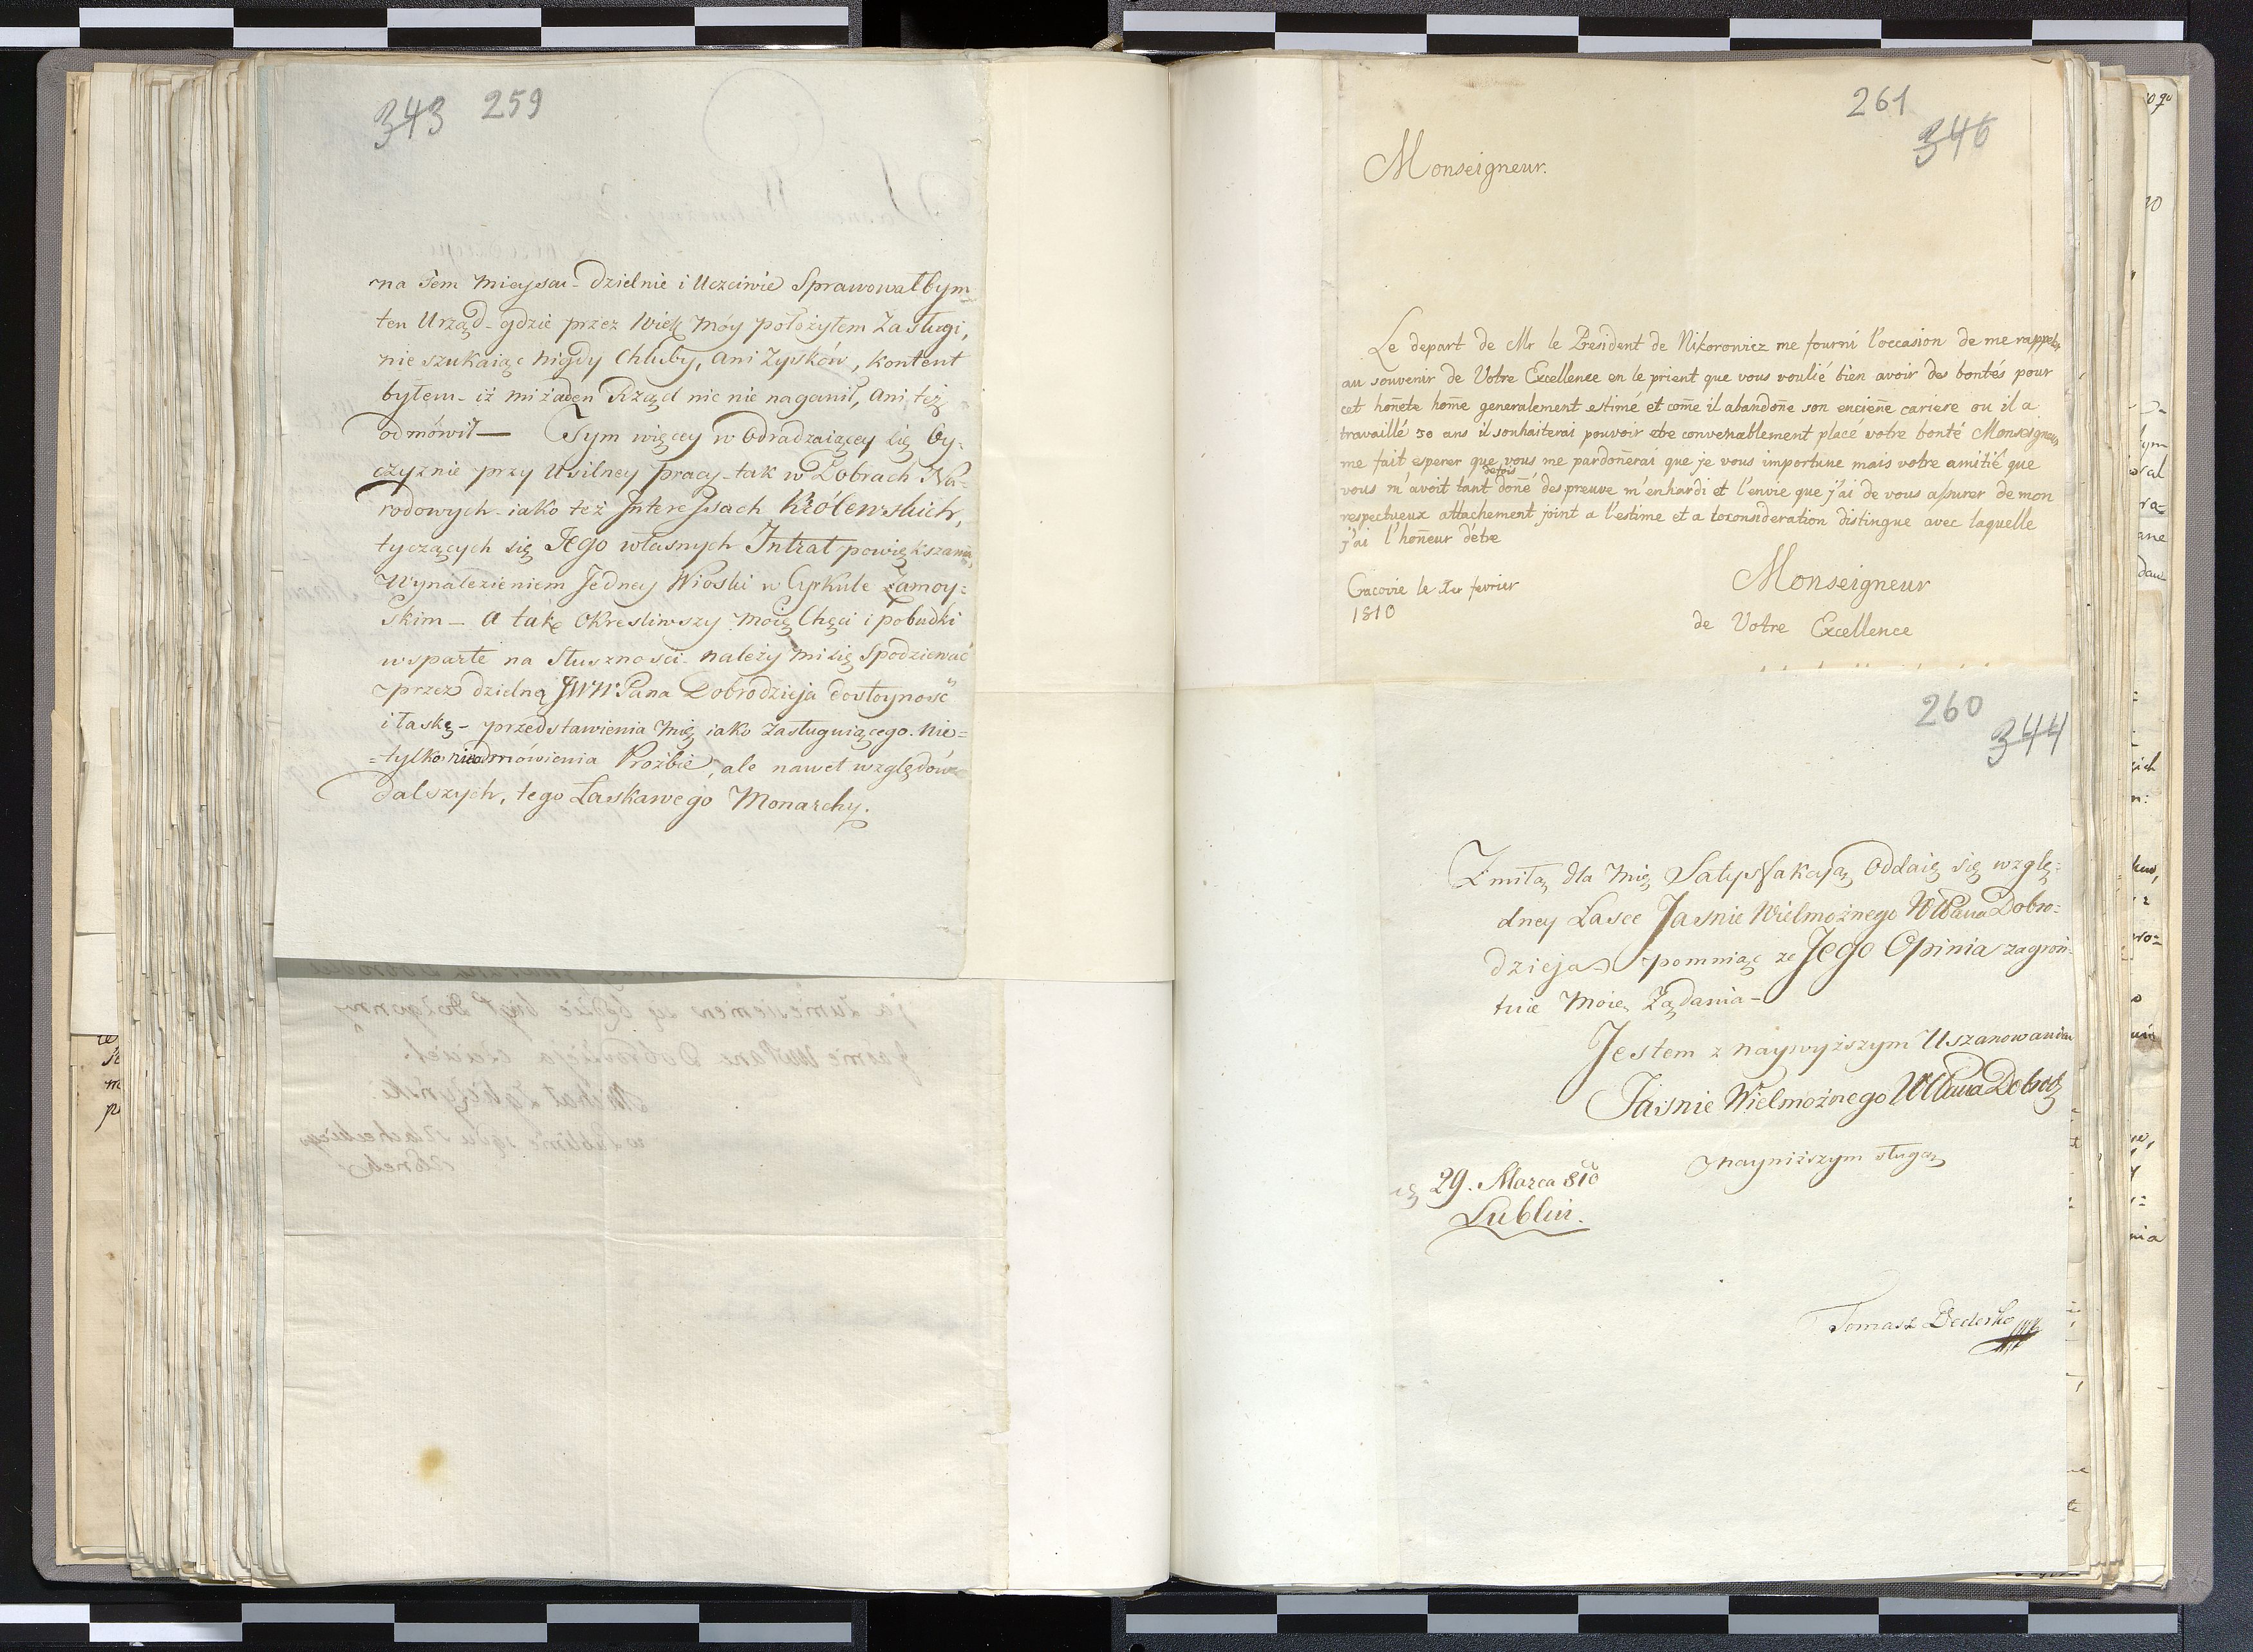 343 259
na Tem mieyscu - dzielnie i Uczciwie Sprawowałbym
ten Urząd - gdzie przez Wiek móy położyłem Zasługi,
nie szukaiąc nigdy Chluby, ani Zysków, kontent
byłem - iż mi żaden Rząd nic nie naganił, ani też
odmówił — Tym więcey w Odradzaiącey się Oy=
czyznie przy Usilney pracy - tak w Dobrach Na=
rodowych - iako też Interessach Królewskich,
tyczących się Jego własnych Intrat powiększania,
Wynalezieniem Jedney Wioski w Cyrkule Zamoy=
skim - a take Okresliwszy moie Chęci i pobudki
wsparte na Słuszności - należy mi się Spodziewać
przez dzielną JWW Pana Dobrodzieja dostoyność
i łaskę - przedstawienia mię iako Zasługuiącego. nie=
=tylko nieodmówienia Proźbie, ale nawet względów
dalszych, tego Łaskawego Monarchy.
261
346
Monseigneur.
Le depart de Mr le President de Nikorowicz me fourni l'occasion de me rappeler
au souvenir de Votre Excellence en le prient que vous voulié bien avoir des bontés pour
cet honete home generalement estimé et come il abandone son enciene cariere ou il a
travaillé 30 ans il souhaiterai pouvoir etre convenablement placé votre bonté Monseigneur
me fait esperer que vous me pardonerai que je vous importune mais votre amitié que
defois
vous m'avoit tant doné des preuve m'enhardi et l'envie que j'ai de vous assurer de mon
respectueux attachement joint a l'estime et a la consideration distingue avec laquelle
j'ai l'honeur d'étre
Cracovie le 1er fevrier
1810
Monseigneur
de Votre Excellence
260
344
Z miłą dla mię Satysfakcją Oddaię się wzglę=
dney Łasce Jasnie Wielmożnego WPana Dobro=
dzieja - pomniąc ze Jego Opinia zagron
tuie moie Ządania -
Jestem z naywyższym Uszanowaniem
Jaśnie Wielmożnego WPana Dobrodz
nayniższym sługą
29. Marca 810
Lublin.
Tomasz Dederko